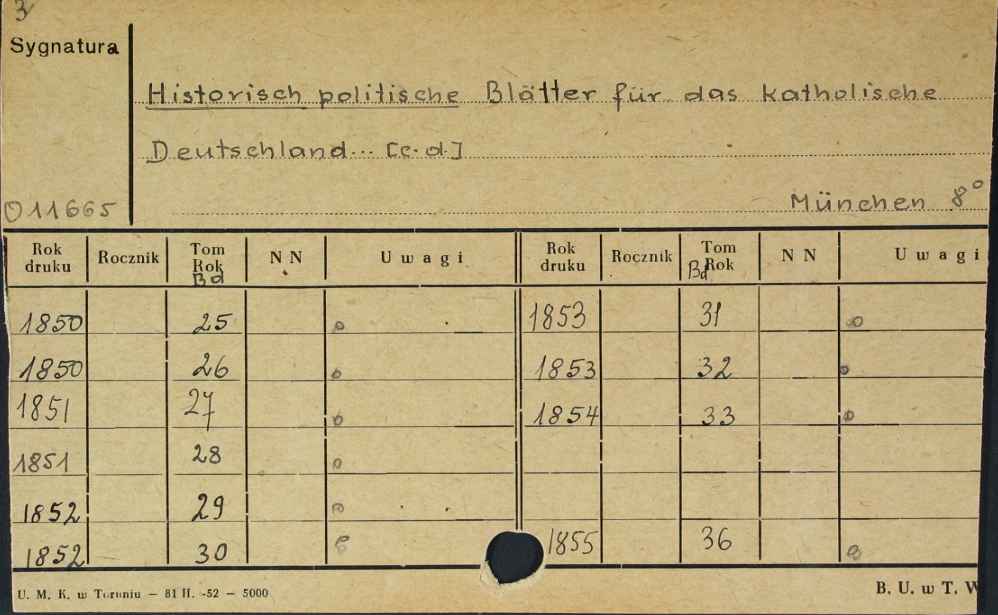 3
Sygnatura
Historisch politische Blätter für das katholische
Deutschland... [c.d.]
011665
München 8°
Rok druku Rocznik Tom Rok Bd NN Uwagi Rok druku Rocznik Tom Bd Rok NN Uwagi
1850 25 1853 31
1850 26 1853 32
1851 27 1854 33
1851 28
1852 29
1852 30 1855 36
U. M. K. w Toruniu — 81 II. -52 — 5000
B. U. w T. W